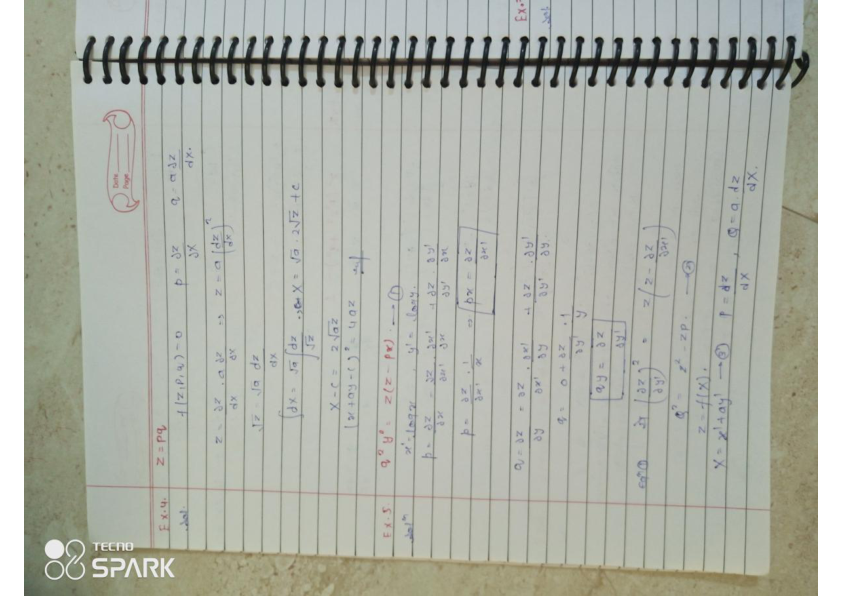 Date
Page
Ex-4. z = pq
sol. f(z, p, q) = 0 p = ∂z/∂X q = a ∂z/∂X.
z = ∂z/∂X . a ∂z/∂X ⇒ z = a (dz/dX)²
√z = √a dz/dX
∫dX = √a ∫dz/√z ⇒ X = √a . 2√z + c
X - c = 2√az
(x + ay - c)² = 4az
Ex-5 q²y² = z(z - px). —①
solⁿ x' = log x, y' = log y.
p = ∂z/∂x = ∂z/∂x' . ∂x'/∂x + ∂z/∂y' . ∂y'/∂x
p = ∂z/∂x' . 1/x ⇒ px = ∂z/∂x'
q = ∂z/∂y = ∂z/∂x' . ∂x'/∂y + ∂z/∂y' . ∂y'/∂y.
q = 0 + ∂z/∂y' . 1/y
qy = ∂z/∂y'
eqⁿ① (∂z/∂y')² = z(z - ∂z/∂x')
q² = z² - zp. —②
z = f(X).
X = x' + ay' —③ p = dz/dX, Q = a dz/dX.
Ex-
sol.
TECNO
SPARK